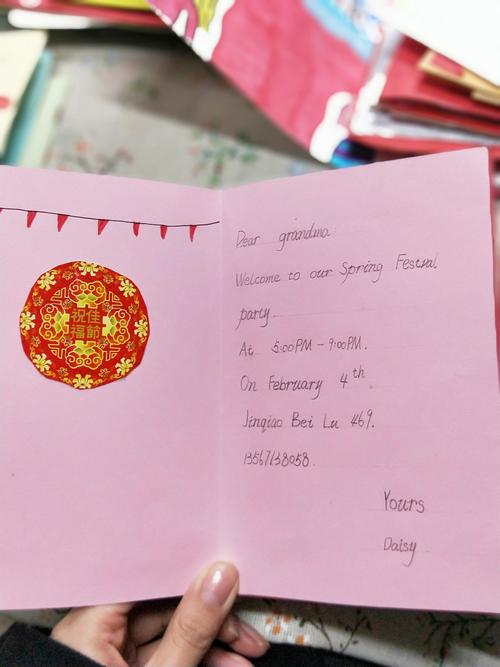 祝佳
福節
Dear grandma
Welcome to our Spring Festval
party.
At 5:00PM - 9:00PM.
On February 4th.
Jinqiao Bei Lu 469.
13567138058.
Yours
Daisy